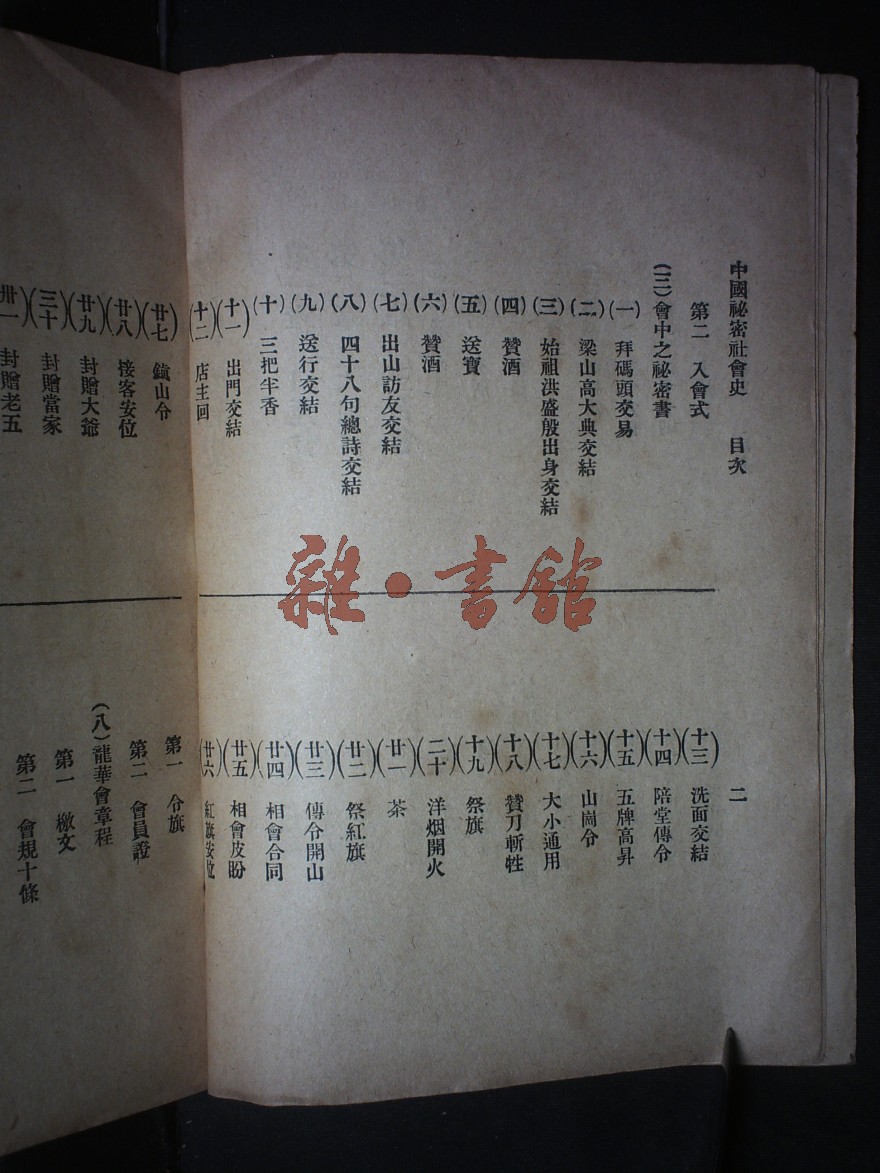 中國祕密社會史　目次
第二　入會式
(三)會中之祕密書
(一)　拜碼頭交易
(二)　梁山高大典交結
(三)　始祖洪盛殷出身交結
(四)　贊酒
(五)　送寶
(六)　贊酒
(七)　出山訪友交結
(八)　四十八句總詩交結
(九)　送行交結
(十)　三把半香
(十一)　出門交結
(十二)　店主回
二
(十三)　洗面交結
(十四)　陪堂傳令
(十五)　五牌高昇
(十六)　山崗令
(十七)　大小通用
(十八)　贊刀斬牲
(十九)　祭旗
(二十)　洋烟開火
(廿一)　茶
(廿二)　祭紅旗
(廿三)　傳令開山
(廿四)　相會合同
(廿五)　相會皮盼
(廿六)　紅旗安位
(廿七)　鎮山令
(廿八)　接客安位
(廿九)　封贈大爺
(三十)　封贈當家
(卅一)　封贈老五
第一　令旗
第二　會員證
(八)龍華會章程
第一　檄文
第二　會規十條
雜·書館